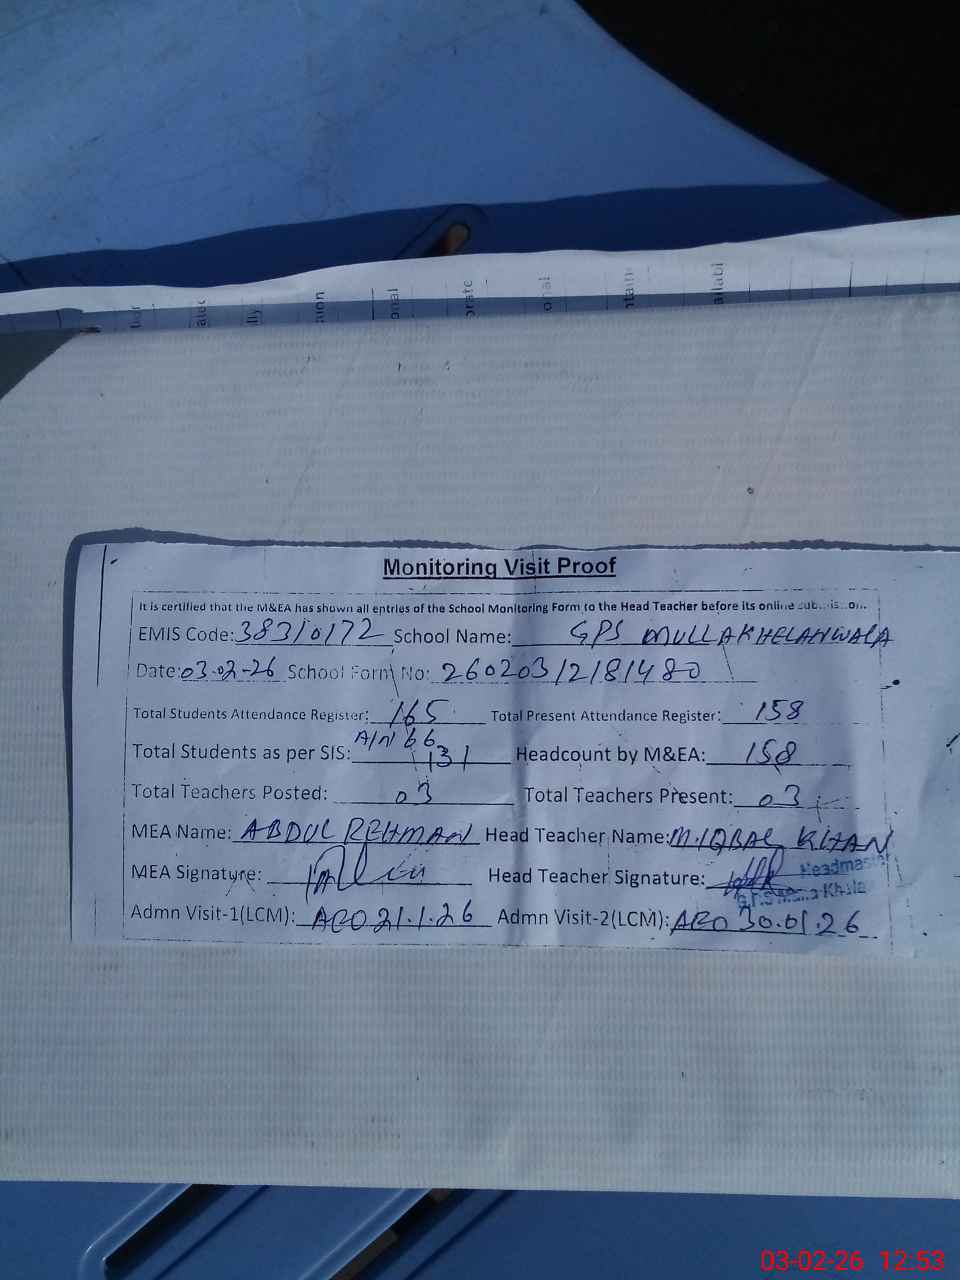 onal
orate
onal
ntain
ailabi
Monitoring Visit Proof
It is certified that the M&EA has shown all entries of the School Monitoring Form to the Head Teacher before its online
EMIS Code: 38310172 School Name: GPS MULLAKHELANWALA
Date: 03-02-26 School Form No: 26020312181480
Total Students Attendance Register: 165 Total Present Attendance Register: 158
A/N 66
Total Students as per SIS: 131 Headcount by M&EA: 158
Total Teachers Posted: 03 Total Teachers Present: 03
MEA Name: ABDUL REHMAN Head Teacher Name: M.IQBAL KHAN
MEA Signature: Head Teacher Signature: Headmaster
Admn Visit-1(LCM): AEO 21.1.26 Admn Visit-2(LCM): AEO 30.01.26
03-02-26 12:53